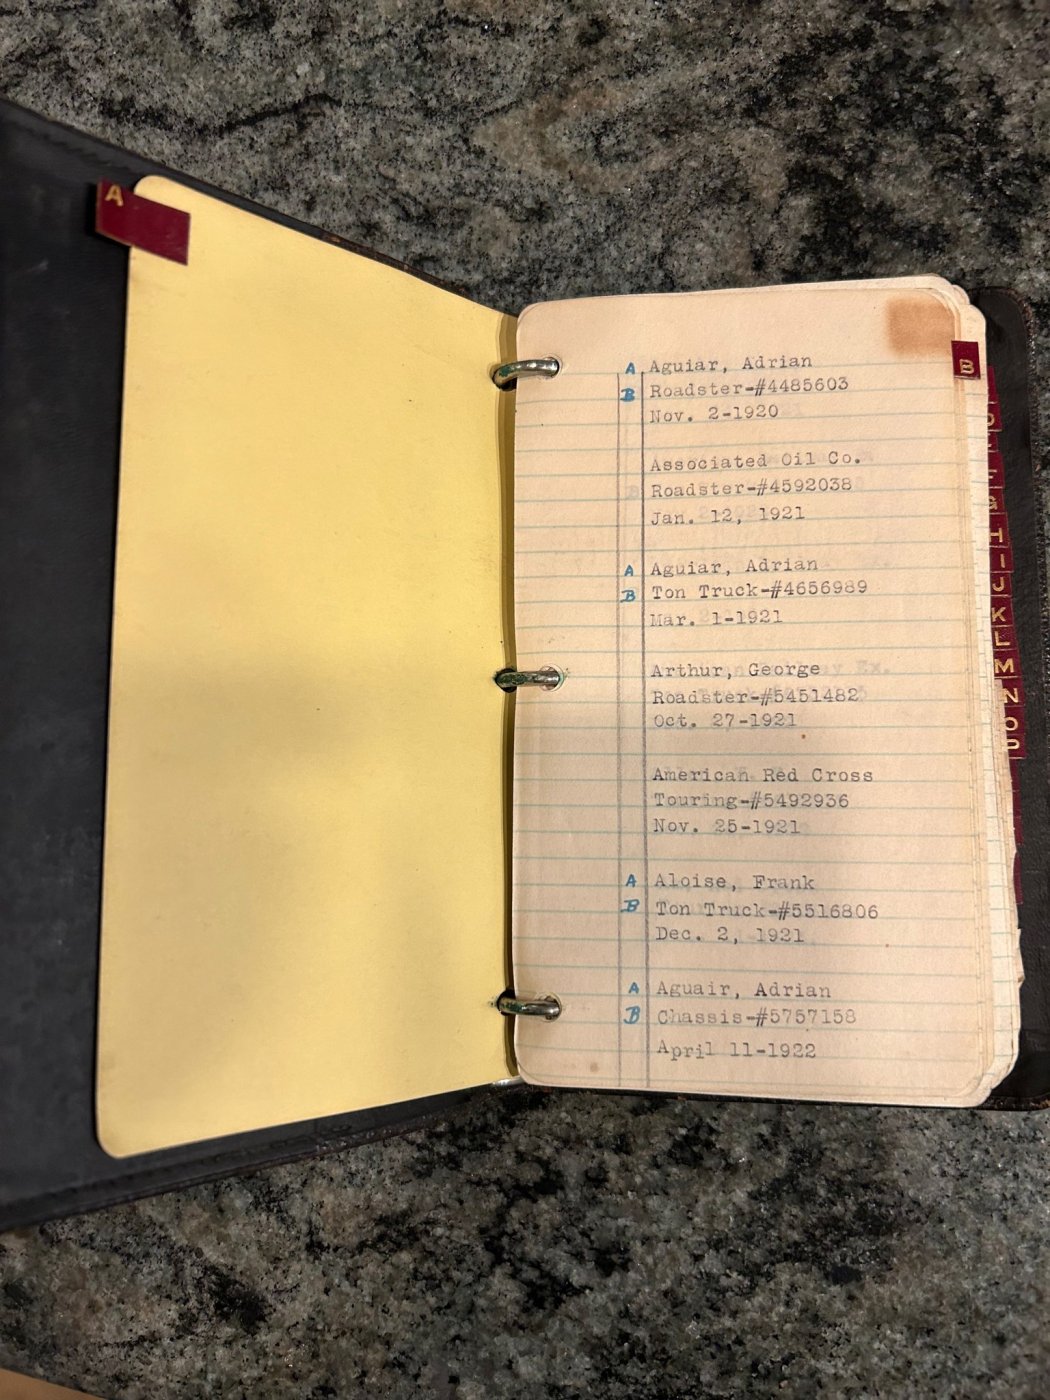 A
A Aguiar, Adrian
B Roadster-#4485603
Nov. 2-1920
Associated Oil Co.
Roadster-#4592038
Jan. 12, 1921
A Aguiar, Adrian
B Ton Truck-#4656989
Mar. 1-1921
Arthur, George
Roadster-#5451482
Oct. 27-1921
American Red Cross
Touring-#5492936
Nov. 25-1921
A Aloise, Frank
B Ton Truck-#5516806
Dec. 2, 1921
A Aguair, Adrian
B Chassis-#5757158
April 11-1922
B
H
I
J
K
L
M
N
O